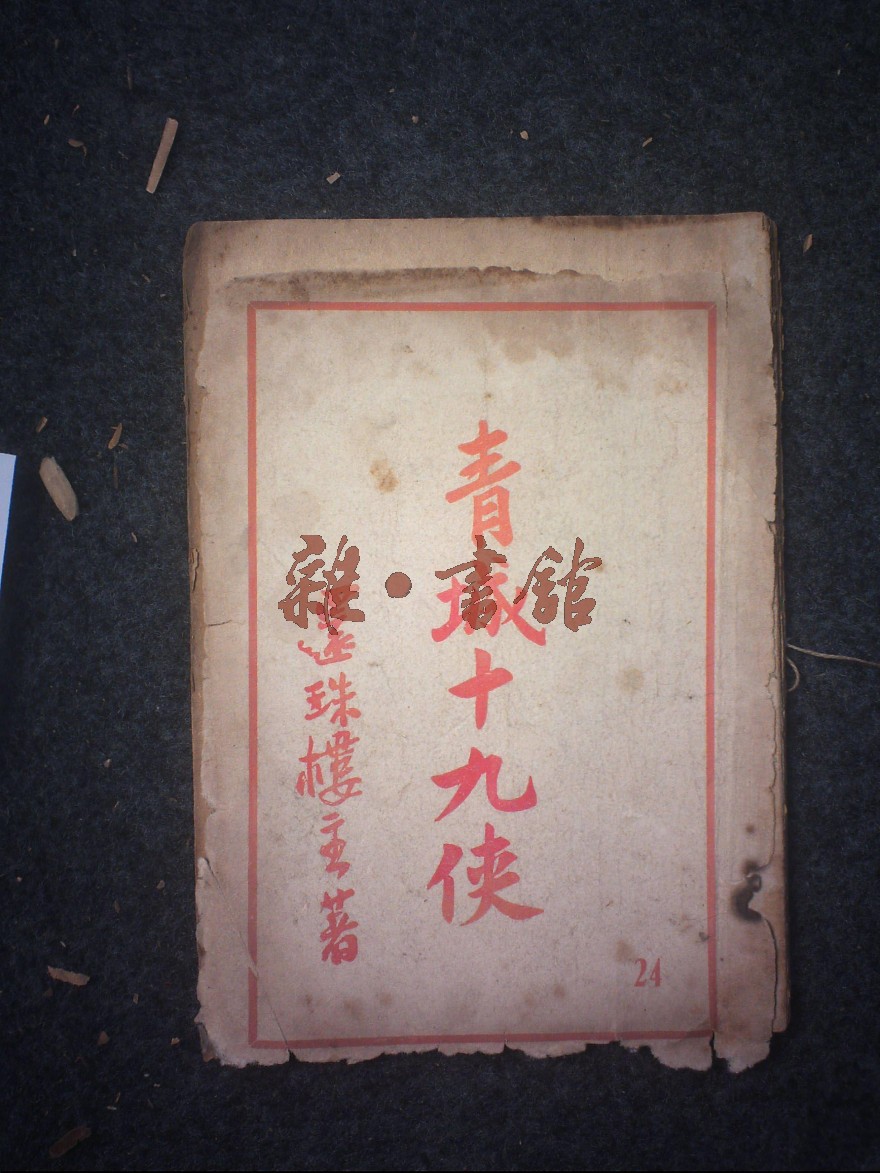 青城十九侠
還珠樓主著
24
雜·書館